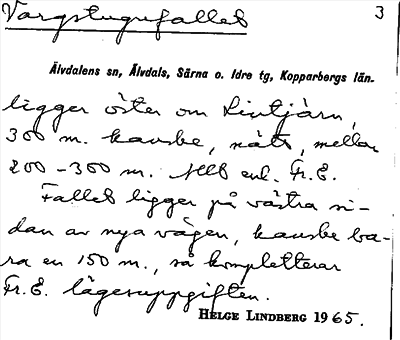 Vargstugufallet
3
Älvdalens sn, Älvdals, Särna o. Idre tg, Kopparbergs län.
ligger öster om Lintjärn,
300 m. kanske, näts, mellan
200 - 300 m. Allt enl. Fr. E.
Fallet ligger på västra si-
dan av nya vägen, kanske ba-
ra en 150 m., så kompletterar
Fr. E. lägesuppgiften.
HELGE LINDBERG 1965.